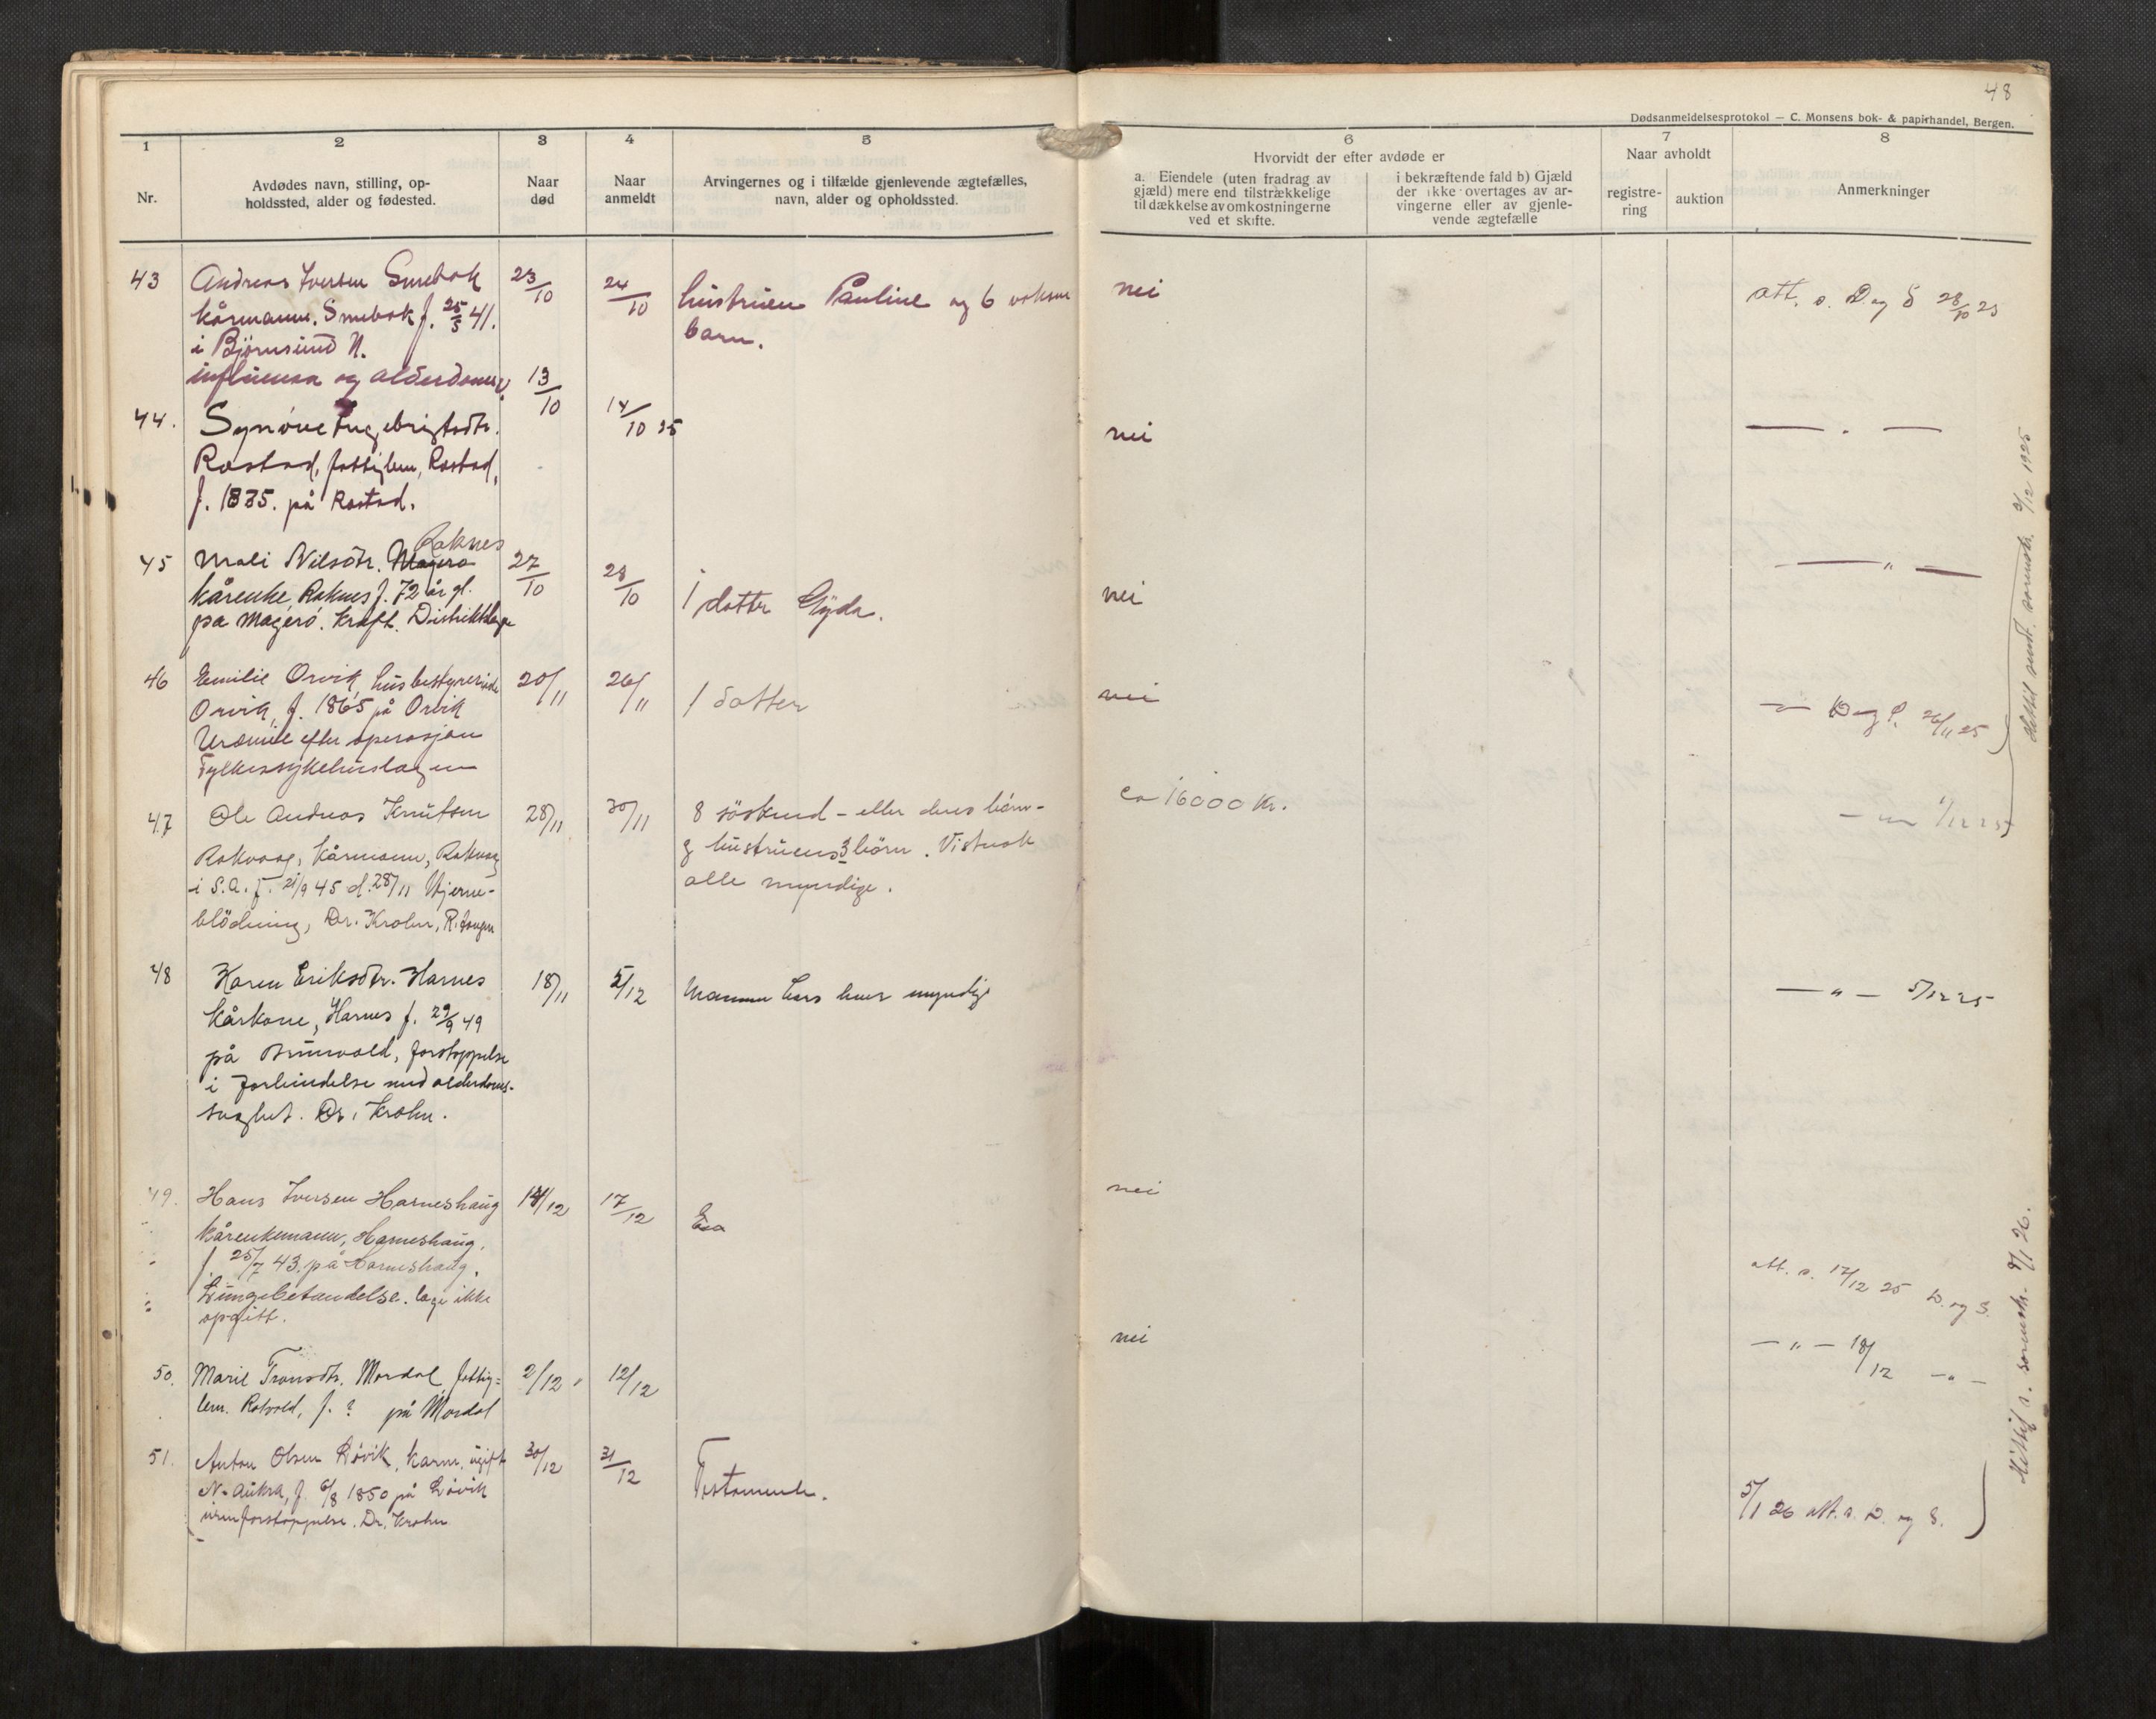 48
Dødsanmeldelsesprotokol — C. Monsens bok- & papirhandel, Bergen.
1
2
3
4
5
6
7
8
Nr.
Avdødes navn, stilling, op-
holdssted, alder og fødested.
Naar
død
Naar
anmeldt
Arvingernes og i tilfælde gjenlevende ægtefælles,
navn, alder og opholdssted.
Hvorvidt der efter avdøde er
a. Eiendele (uten fradrag av
gjæld) mere end tilstrækkelige
til dækkelse av omkostningerne
ved et skifte.
i bekræftende fald b) Gjæld
der ikke overtages av ar-
vingerne eller av gjenle-
vende ægtefælle
Naar avholdt
registre-
ring
auktion
Anmerkninger
43 Andreas Iversen Smebak 23/10 24/10 hustruen Pauline og 6 voksne nei att. s. D og S 28/10 25
kårmann, Smebak f. 25/5 41.
barn.
i Björnsund N.
influensa og alderdom
44. Synöve Ingebrigtsdtr. 13/10 14/10 25 nei — „ —
Rostad, fattiglem, Rostad,
f. 1835. på Rostad.
Raknes
45 Mali Nilsdtr. Magerö 27/10 28/10 1 datter Gyda. nei — „ —
kårenke, Raknes f. 72 år gl.
på Magerö. Kræft. Distriktslæge
46 Emilie Orvik, husbestyrerinde 20/11 26/11 1 datter nei — „ — D og S. 26/11 25
Orvik, f. 1865 på Orvik
Uræmie efter operasjon
Fylkessykehuslægen
47 Ole Andreas Knutsen 28/11 30/11 8 söskend - eller deres börn - ca 16000 kr. — „ — 1/12 25
Rakvaag, kårmann, Rakvaag
og hustruens 3 börn. Vistnok
i S.A. f. 21/9 45 d. 28/11 Hjerne-
alle myndige.
blödning, Dr. Krohn,
48 Karen Eriksdtr. Harnes 18/11 5/12 myndige — „ — 5/12 25
kårkone, Harnes f. 29/9 49
på forstoppelse
i forbindelse med alderdoms-
svaghet. Dr. Krohn.
Hittil sendt sorenskr. 3/12 1925
49. Hans Iversen Harneshaug 14/12 17/12 nei
kårenkemann, Harneshaug,
f. 25/7 43. på Harneshaug.
att. s. 17/12 25 D. og S.
Lungebetændelse. læge ikke
opgitt.
50. Marie Tronsdtr. Mordal fattig= 2/12 12/12 nei — „ — 18/12 — „ —
lem. Rotvold, f. ? på Mordal
51. Anton Olsen Lövik, kårm. ugift 30/12 31/12 Testamente.
N-Aukra, f. 6/8 1850 på Lövik
5/1 26 att. s. D. og S.
urinforstoppelse. Dr. Krohn
Hittil s. sorenskr. 9/1 26.